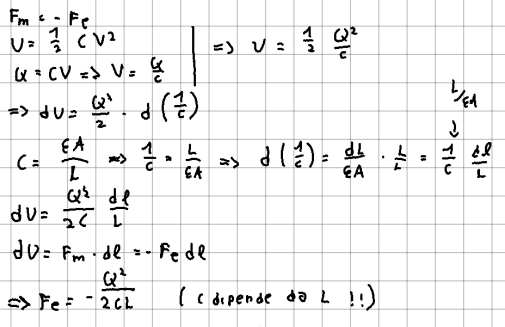 Fm = - Fe
U = 1/2 C V² => U = 1/2 Q²/C
Q = CV => V = Q/C
=> dU = Q²/2 · d (1/C)
L/εA
↓
C = εA/L => 1/C = L/εA => d (1/C) = dL/εA · L/L = 1/C dl/L
dU = Q²/2C dl/L
dU = Fm · dl = - Fe dl
=> Fe = - Q²/2CL ( C dipende da L !!)